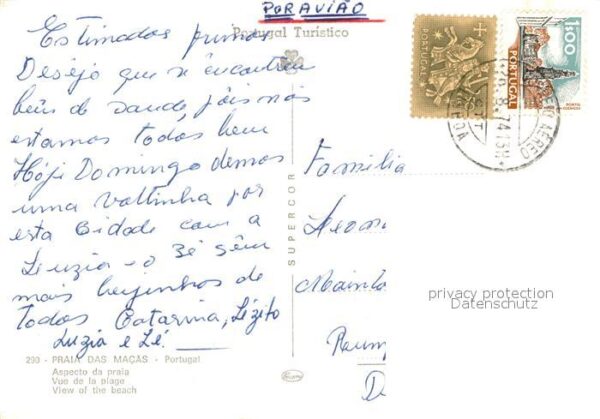 POR AVIÃO
Portugal Turístico
Estimados primos
Desejo que se encontrem
bem de saude, pois nós
estamos todos bem
Hoje Domingo demos
uma voltinha por
esta Cidade com a
Luzia e o Zé sem
mais beijinhos de
todos Catarina, Zézito
Luzia e Zé.
290 - PRAIA DAS MAÇAS - Portugal
Aspecto da praia
Vue de la plage
View of the beach
SUPERCOR
Familia
Mainta
PORTUGAL
CTT
1$00
PORTUGAL
CORREIO AEREO
LISBOA
8.74.15H
privacy protection
Datenschutz